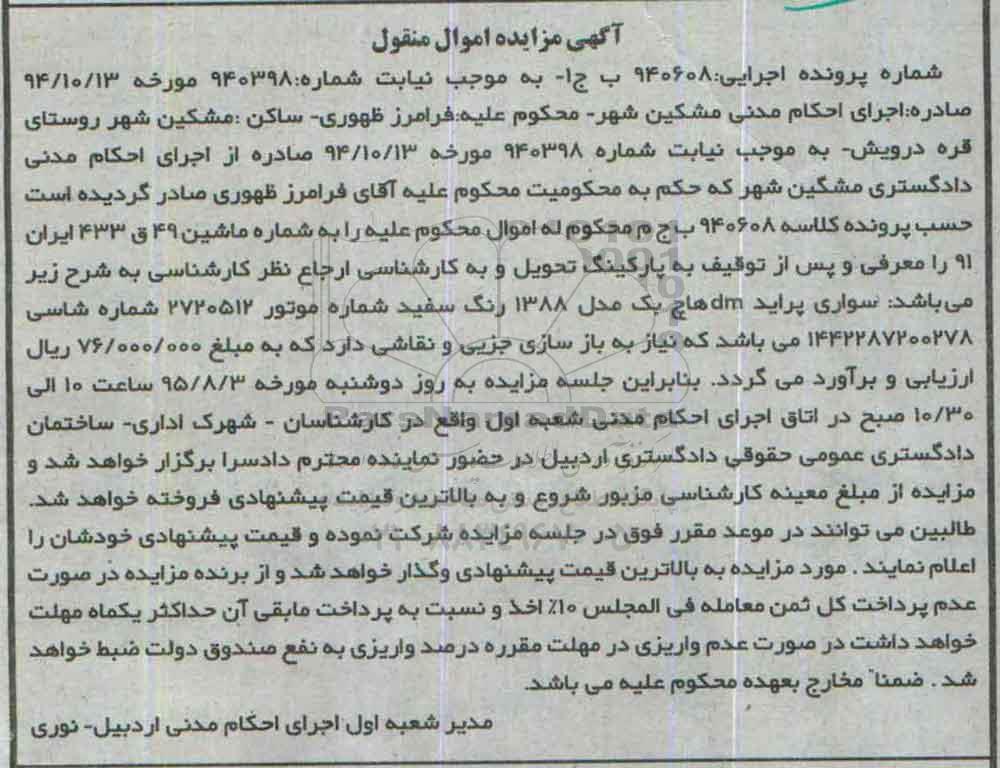 آگهی مزایده اموال منقول
شماره پرونده اجرایی:۹۴۰۶۰۸ ب ج۱- به موجب نیابت شماره:۹۴۰۳۹۸ مورخه ۹۴/۱۰/۱۳
صادره:اجرای احکام مدنی مشکین شهر- محکوم علیه:فرامرز ظهوری- ساکن :مشکین شهر روستای
قره درویش- به موجب نیابت شماره ۹۴۰۳۹۸ مورخه ۹۴/۱۰/۱۳ صادره از اجرای احکام مدنی
دادگستری مشگین شهر که حکم به محکومیت محکوم علیه آقای فرامرز ظهوری صادر گردیده است
حسب پرونده کلاسه ۹۴۰۶۰۸ ب ج م محکوم له اموال محکوم علیه را به شماره ماشین ۴۹ ق ۴۳۳ ایران
۹۱ را معرفی و پس از توقیف به پارکینگ تحویل و به کارشناسی ارجاع نظر کارشناسی به شرح زیر
می باشد: سواری پراید dm هاچ بک مدل ۱۳۸۸ رنگ سفید شماره موتور ۲۷۲۰۵۱۲ شماره شاسی
۱۴۴۲۲۸۷۲۰۰۲۷۸ می باشد که نیاز به باز سازی جزیی و نقاشی دارد که به مبلغ ۷۶/۰۰۰/۰۰۰ ریال
ارزیابی و برآورد می گردد. بنابراین جلسه مزایده به روز دوشنبه مورخه ۹۵/۸/۳ ساعت ۱۰ الی
۱۰/۳۰ صبح در اتاق اجرای احکام مدنی شعبه اول واقع در کارشناسان - شهرک اداری- ساختمان
دادگستری عمومی حقوقی دادگستری اردبیل در حضور نماینده محترم دادسرا برگزار خواهد شد و
مزایده از مبلغ معینه کارشناسی مزبور شروع و به بالاترین قیمت پیشنهادی فروخته خواهد شد.
طالبین می توانند در موعد مقرر فوق در جلسه مزایده شرکت نموده و قیمت پیشنهادی خودشان را
اعلام نمایند . مورد مزایده به بالاترین قیمت پیشنهادی وگذار خواهد شد و از برنده مزایده در صورت
عدم پرداخت کل ثمن معامله فی المجلس ۱۰٪ اخذ و نسبت به پرداخت مابقی آن حداکثر یکماه مهلت
خواهد داشت در صورت عدم واریزی در مهلت مقرره درصد واریزی به نفع صندوق دولت ضبط خواهد
شد . ضمناً مخارج بعهده محکوم علیه می باشد.
مدیر شعبه اول اجرای احکام مدنی اردبیل- نوری